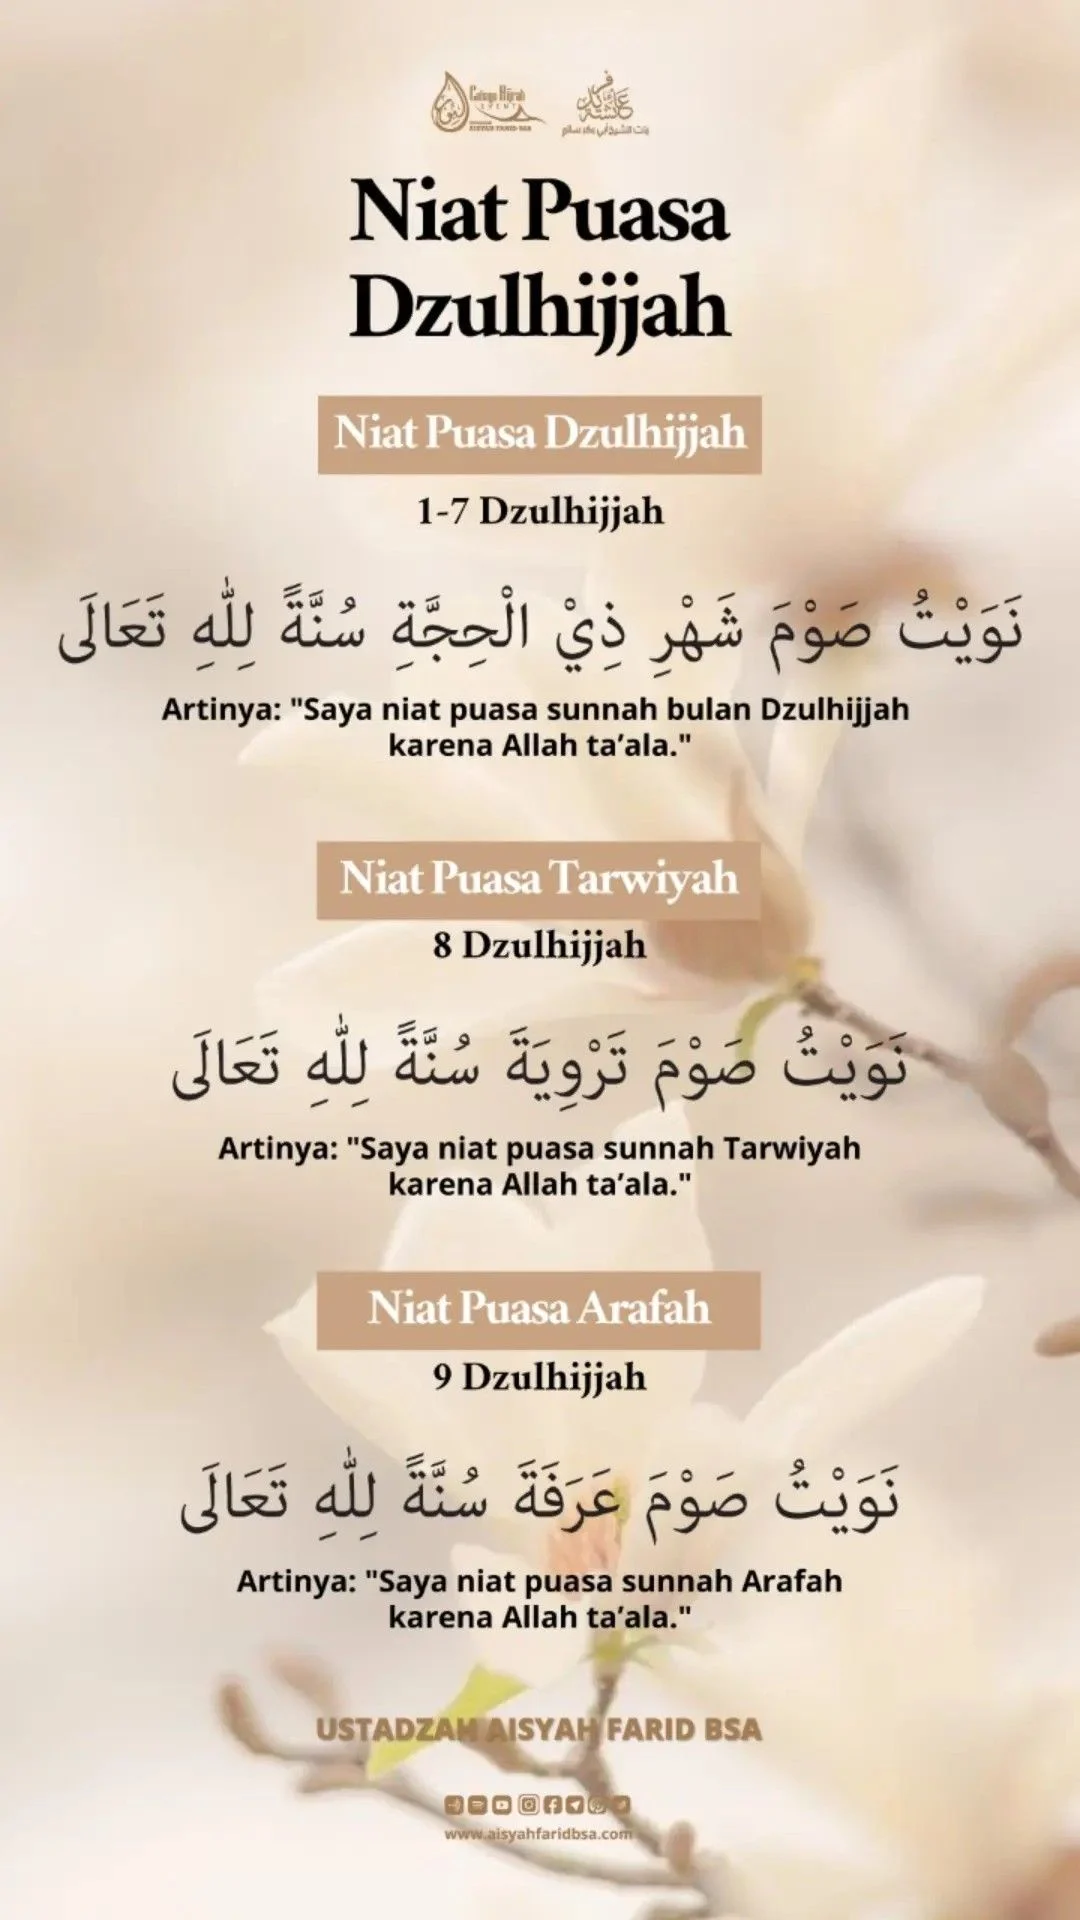 Cahaya Hijrah
EVENT
AISYAH FARID BSA
Niat Puasa
Dzulhijjah
Niat Puasa Dzulhijjah
1-7 Dzulhijjah
نَوَيْتُ صَوْمَ شَهْرِ ذِيْ الْحِجَّةِ سُنَّةً لِلّٰهِ تَعَالَى
Artinya: "Saya niat puasa sunnah bulan Dzulhijjah
karena Allah ta’ala."
Niat Puasa Tarwiyah
8 Dzulhijjah
نَوَيْتُ صَوْمَ تَرْوِيَةَ سُنَّةً لِلّٰهِ تَعَالَى
Artinya: "Saya niat puasa sunnah Tarwiyah
karena Allah ta’ala."
Niat Puasa Arafah
9 Dzulhijjah
نَوَيْتُ صَوْمَ عَرَفَةَ سُنَّةً لِلّٰهِ تَعَالَى
Artinya: "Saya niat puasa sunnah Arafah
karena Allah ta’ala."
USTADZAH AISYAH FARID BSA
www.aisyahfaridbsa.com